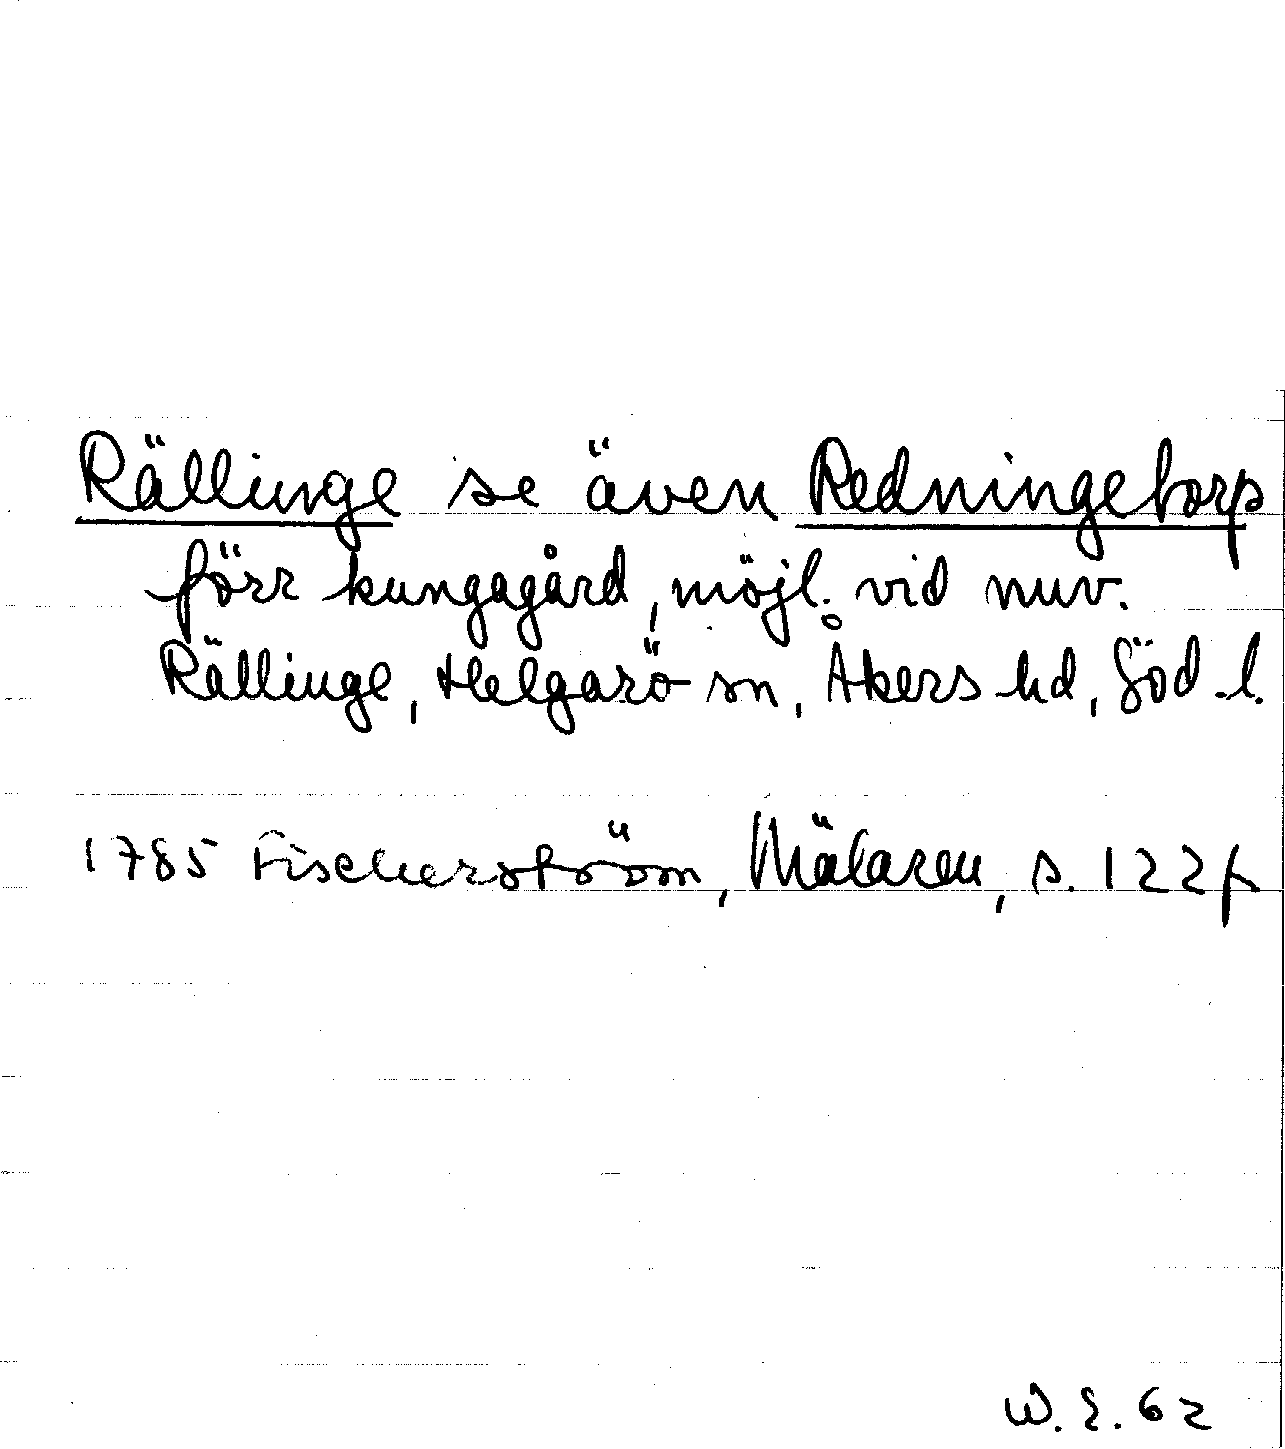 Rällinge se även Redningetorp
förr kungagård, möjl. vid nuv.
Rällinge, Helgarö sn, Åkers hd, Söd. l.
1785 Fischerström, Mälaren, s. 122f
W. E. 62